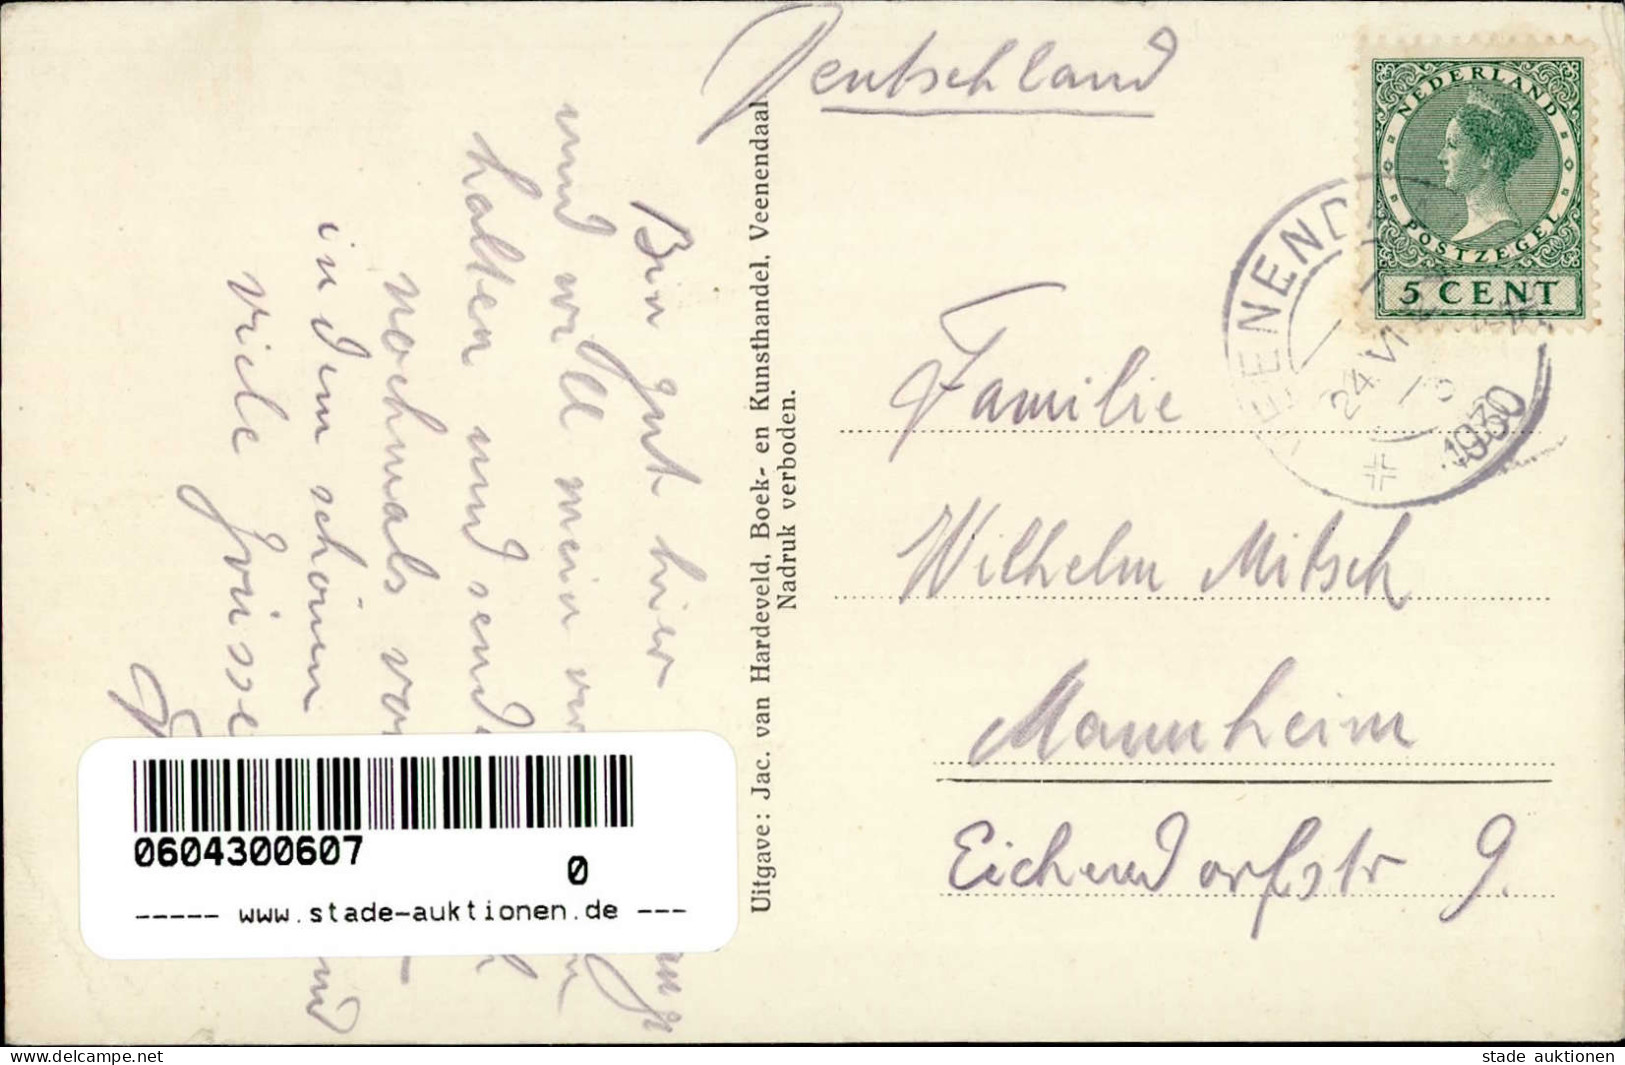 Deutschland
NEDERLAND
POSTZEGEL
5 CENT
VEENENDAAL
24 VI
1930
Familie
Wilhelm Mitsch
Mannheim
Eichendorfstr 9.
Uitgave: Jac. van Hardeveld, Boek- en Kunsthandel, Veenendaal.
Nadruk verboden.
Bin gut hier
und will mein
halten und send
nochmals
in dem schönen
viele Grüsse
0604300607
0
----- www.stade-auktionen.de ---
hosted by delcampe.net
stade auktionen